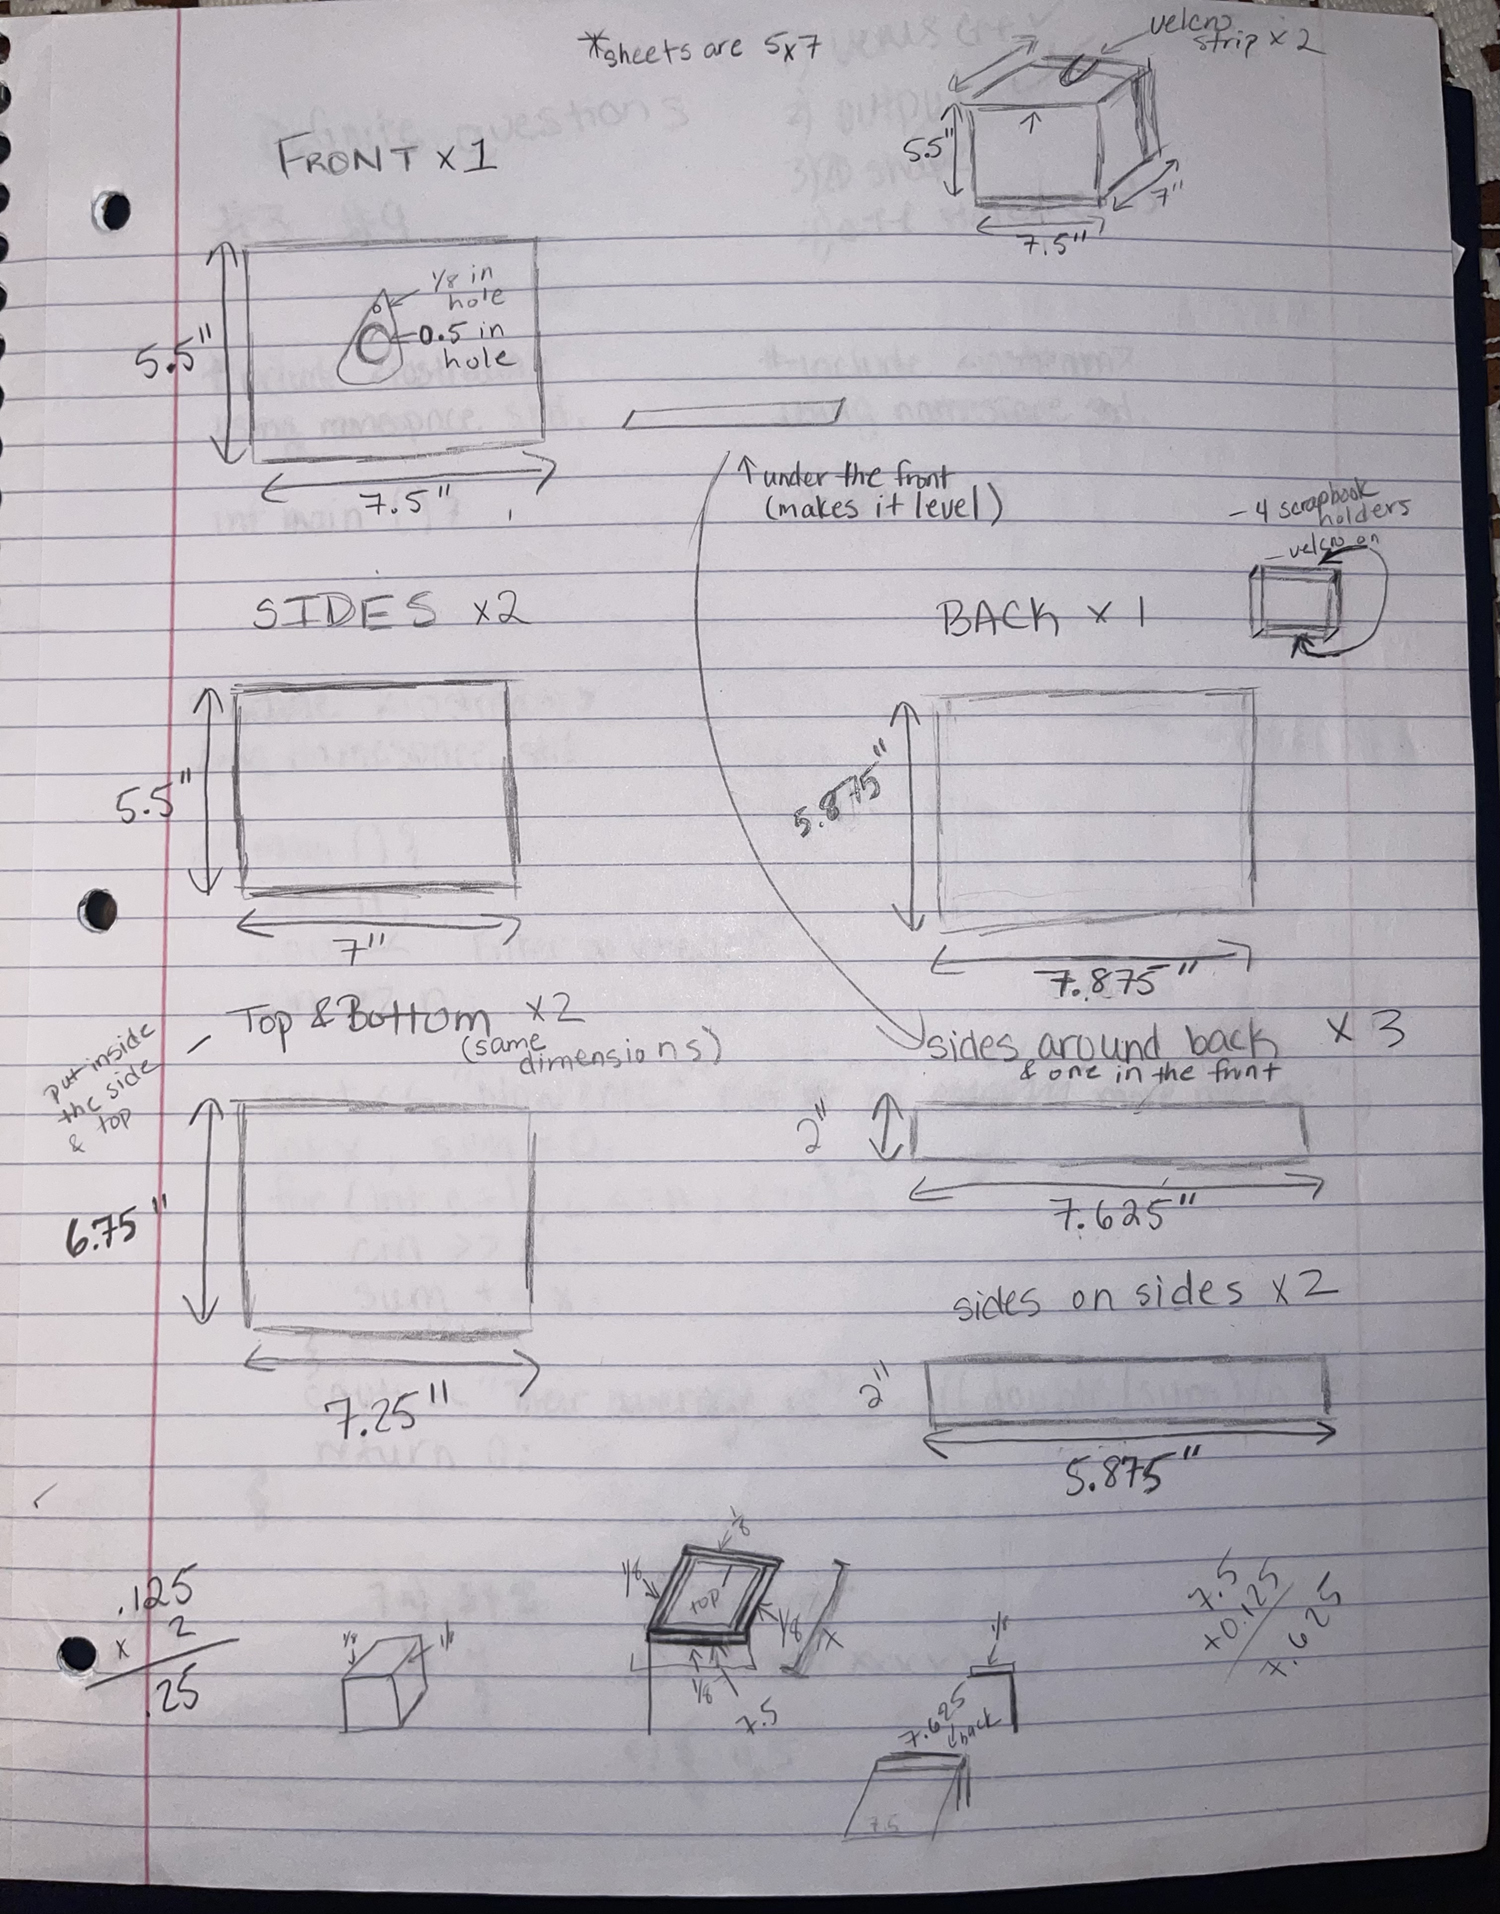 *sheets are 5x7
velcro
strip x 2
5.5"
7"
7.5"
FRONT x 1
1/8 in
hole
0.5 in
hole
5.5"
7.5"
↑ under the front
(makes it level)
- 4 scrapbook
holders
- velcro on
SIDES x2
5.5"
7"
BACK x 1
5.875"
7.875"
put inside
the side
& top
- Top & Bottom x2
(same
dimensions)
6.75"
7.25"
sides around back x 3
& one in the front
2"
7.625"
sides on sides x 2
2"
5.875"
.125
x 2
.25
1/8
1/8
1/8
1/8
top
1/8
1/8
x
7.5
1/8
7.625
back
7.5
7.5
+0.125
7.625